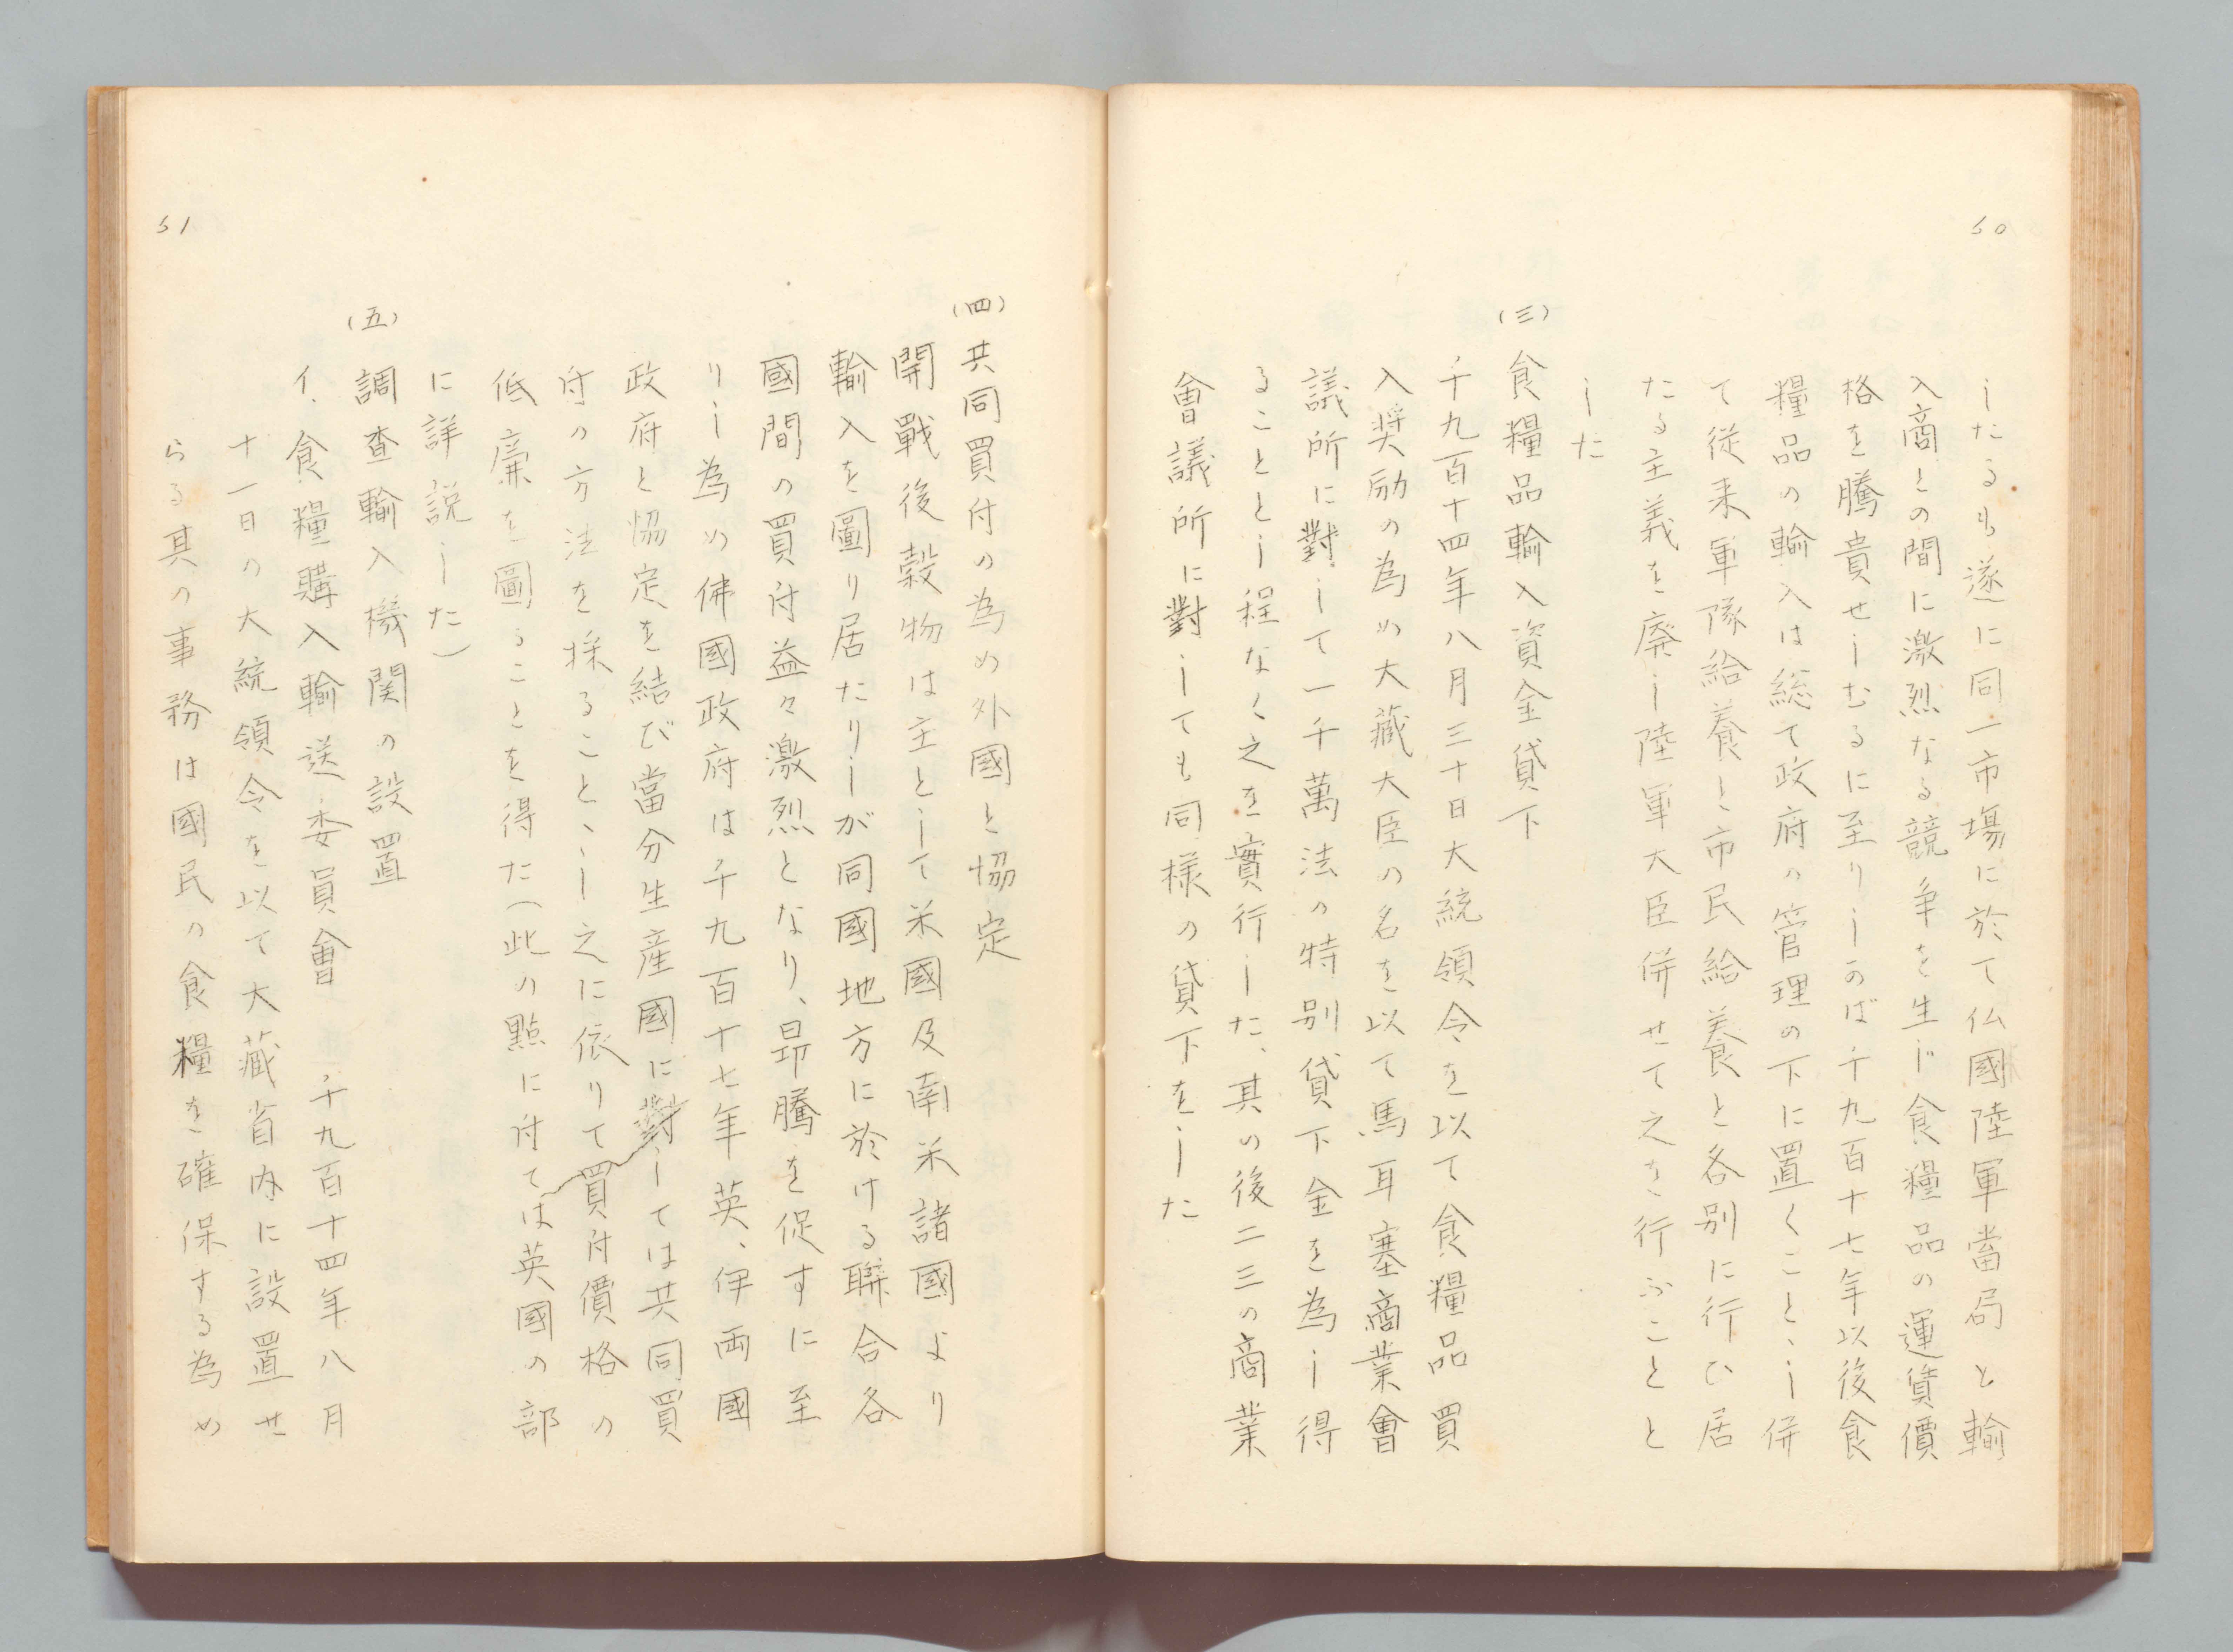 50
したるも遂に同一市場に於て仏國陸軍當局と輸
入商との間に激烈なる競争を生じ食糧品の運賃價
格を騰貴せしむるに至りしのば千九百十七年以後食
糧品の輸入は総て政府の管理の下に置くことゝし併
て従来軍隊給養と市民給養と各別に行ひ居
たる主義を廃し陸軍大臣併せて之を行ふことと
した
(三)食糧品輸入資金貸下
千九百十四年八月三十日大統領令を以て食糧品買
入奨励の為め大藏大臣の名を以て馬耳塞商業會
議所に對して一千萬法の特別貸下金を為し得
ることとし程なく之を實行した、其の後二三の商業
會議所に對しても同様の貸下をした
51
(四)共同買付の為め外國と協定
開戰後穀物は主として米國及南米諸國より
輸入を圖り居たりしが同國地方に於ける聯合各
國間の買付益々激烈となり、昂騰を促すに至
りし為め佛國政府は千九百十七年英、伊両國
政府と協定を結び當分生産國に對しては共同買
付の方法を採ることゝし之に依りて買付價格の
低廉を圖ることを得た(此の點に付ては英國の部
に詳説した)
(五)調査輸入機関の設置
イ、食糧購入輸送委員會 千九百十四年八月
十一日の大統領令を以て大藏省内に設置せ
らる其の事務は國民の食糧を確保する為め